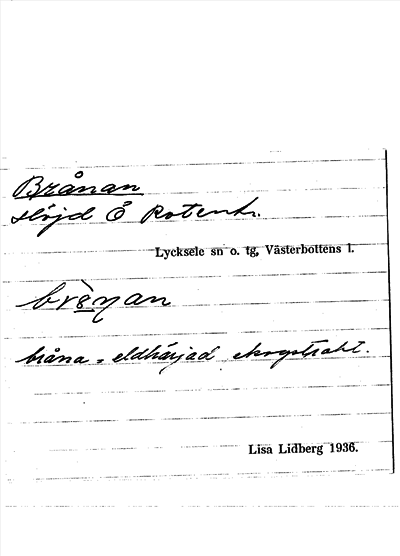 Brånan
Höjd Ö Rotentr.
Lycksele sn o. tg, Västerbottens l.
bråna = eldhärjad skogstrakt.
Lisa Lidberg 1936.